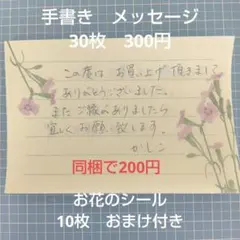 手書き　メッセージ
30枚　300円
この度は お買い上げ頂きまして
ありがとうございました。
また ご縁がありましたら
宜しくお願い致します。
かしこ
同梱で200円
お花のシール
10枚　おまけ付き